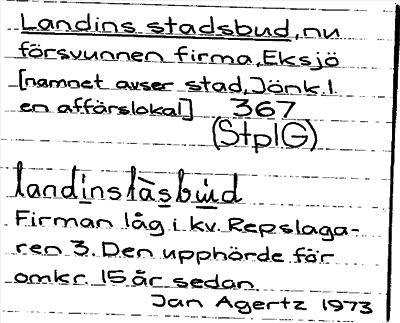 Landins stadsbud, nu
försvunnen firma, Eksjö
[namnet avser stad, Jönk. l.
en affärslokal] 367
(StplG)
landinstàsbud
Firman låg i kv. Repslaga-
ren 3. Den upphörde för
omkr. 15 år sedan.
Jan Agertz 1973